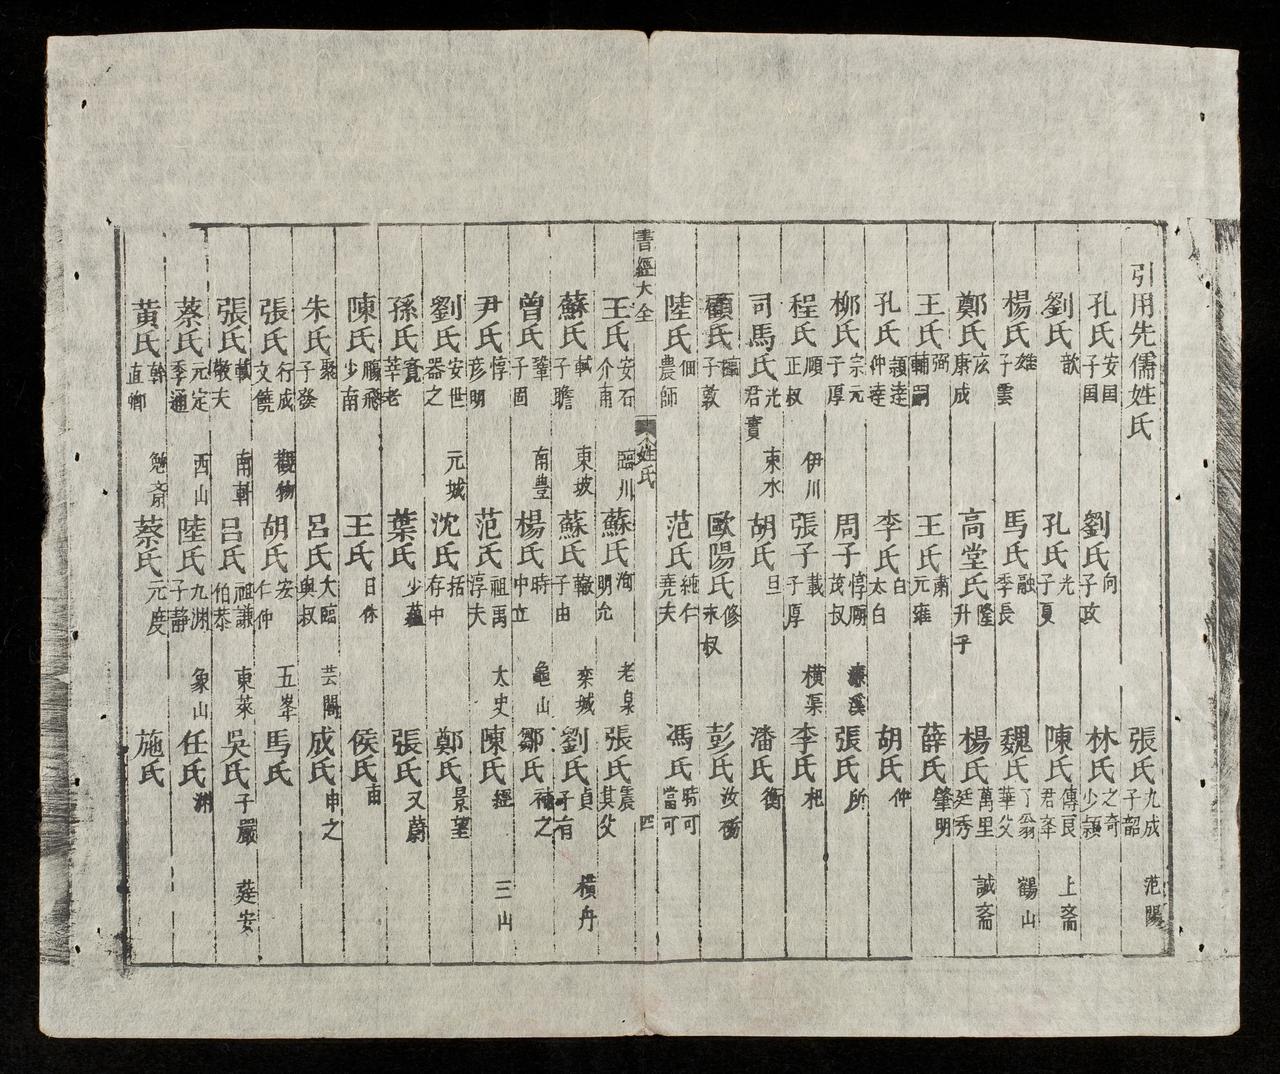 引用先儒姓氏 張氏 九成 子韶 范陽
孔氏 安国 子国 劉氏 向 子政 林氏 之奇 少穎
劉氏 歆 孔氏 光 子夏 陳氏 傳良 君峯 上斋
楊氏 雄 子雲 馬氏 融 季長 魏氏 了翁 華父 鶴山
鄭氏 玄 康成 高堂氏 隆 升乎 楊氏 萬里 廷秀 誠斋
王氏 弼 輔嗣 王氏 肅 元雍 薛氏 肇明
孔氏 穎達 仲達 李氏 白 太白 胡氏 仲
柳氏 宗元 子厚 周子 惇頤 茂叔 濂溪 張氏 所
程氏 頤 正叔 伊川 張子 載 子厚 橫渠 李氏 杞
司馬氏 光 君實 束水 胡氏 旦 潘氏 衡
顧氏 臨 子敦 歐陽氏 修 永叔 彭氏 汝衝
陸氏 佃 農師 范氏 純仁 堯夫 馮氏 時可 當可
書經大全 姓氏 四
王氏 安石 介甫 臨川 蘇氏 洵 明允 老泉 張氏 震 其父
蘇氏 軾 子瞻 東坡 蘇氏 轍 子由 欒城 劉氏 貞 子有 橫舟
曾氏 鞏 子固 南豊 楊氏 時 中立 龜山 鄒氏 補之
尹氏 惇 彦明 范氏 祖禹 淳夫 太史 陳氏 經 三山
劉氏 安世 器之 元城 沈氏 括 存中 鄭氏 景望
孫氏 覺 莘老 葉氏 少蘊 張氏 又蔚
陳氏 鵬飛 少南 王氏 日休 侯氏 甫
朱氏 子發 呂氏 大臨 與叔 芸閣 成氏 申之
張氏 行成 文饒 觀物 胡氏 安 仁仲 五峯 馬氏
張氏 栻 敬夫 南軒 呂氏 祖謙 伯恭 東萊 吳氏 子嚴 莚安
蔡氏 元定 季通 西山 陸氏 九淵 子静 象山 任氏 淵
黄氏 榦 直卿 勉斎 蔡氏 元度 施氏